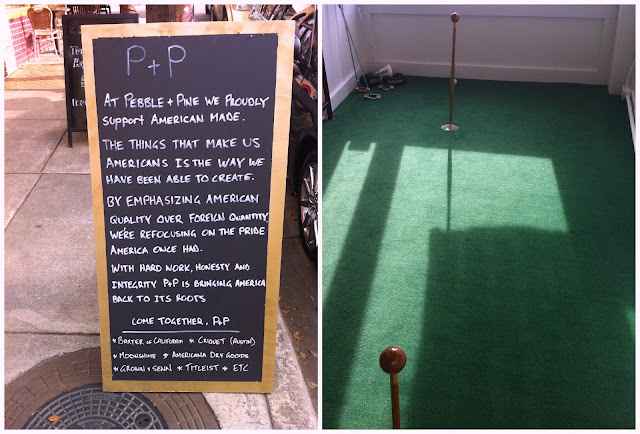 P+P
AT PEBBLE + PINE WE PROUDLY
SUPPORT AMERICAN MADE.
THE THINGS THAT MAKE US
AMERICANS IS THE WAY WE
HAVE BEEN ABLE TO CREATE.
BY EMPHASIZING AMERICAN
QUALITY OVER FOREIGN QUANTITY
WE'RE REFOCUSING ON THE PRIDE
AMERICA ONCE HAD.
WITH HARD WORK, HONESTY AND
INTEGRITY P+P IS BRINGING AMERICA
BACK TO ITS ROOTS
COME TOGETHER, P+P
* BAXTER OF CALIFORNIA * CRIQUET (AUSTIN)
* MOONSHINE * AMERICANA DRY GOODS
* GROWN & SEWN * TITLEIST * ETC